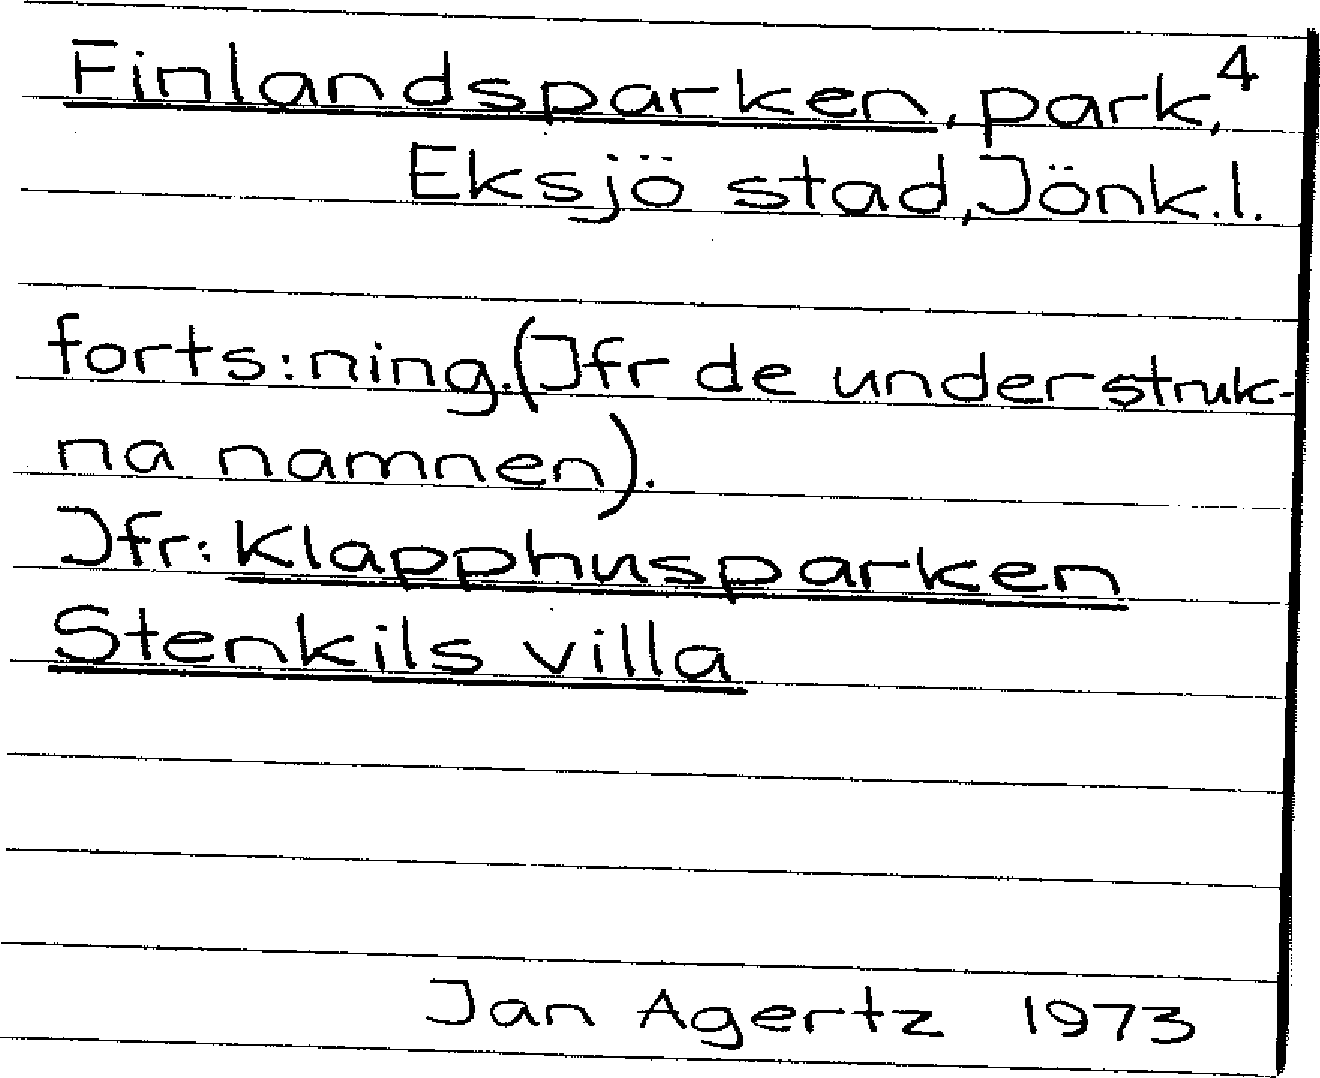 Finlandsparken, park, 4
Eksjö stad, Jönk.l.
forts:ning. (Jfr de understruk-
na namnen).
Jfr: Klapphusparken
Stenkils villa
Jan Agertz 1973